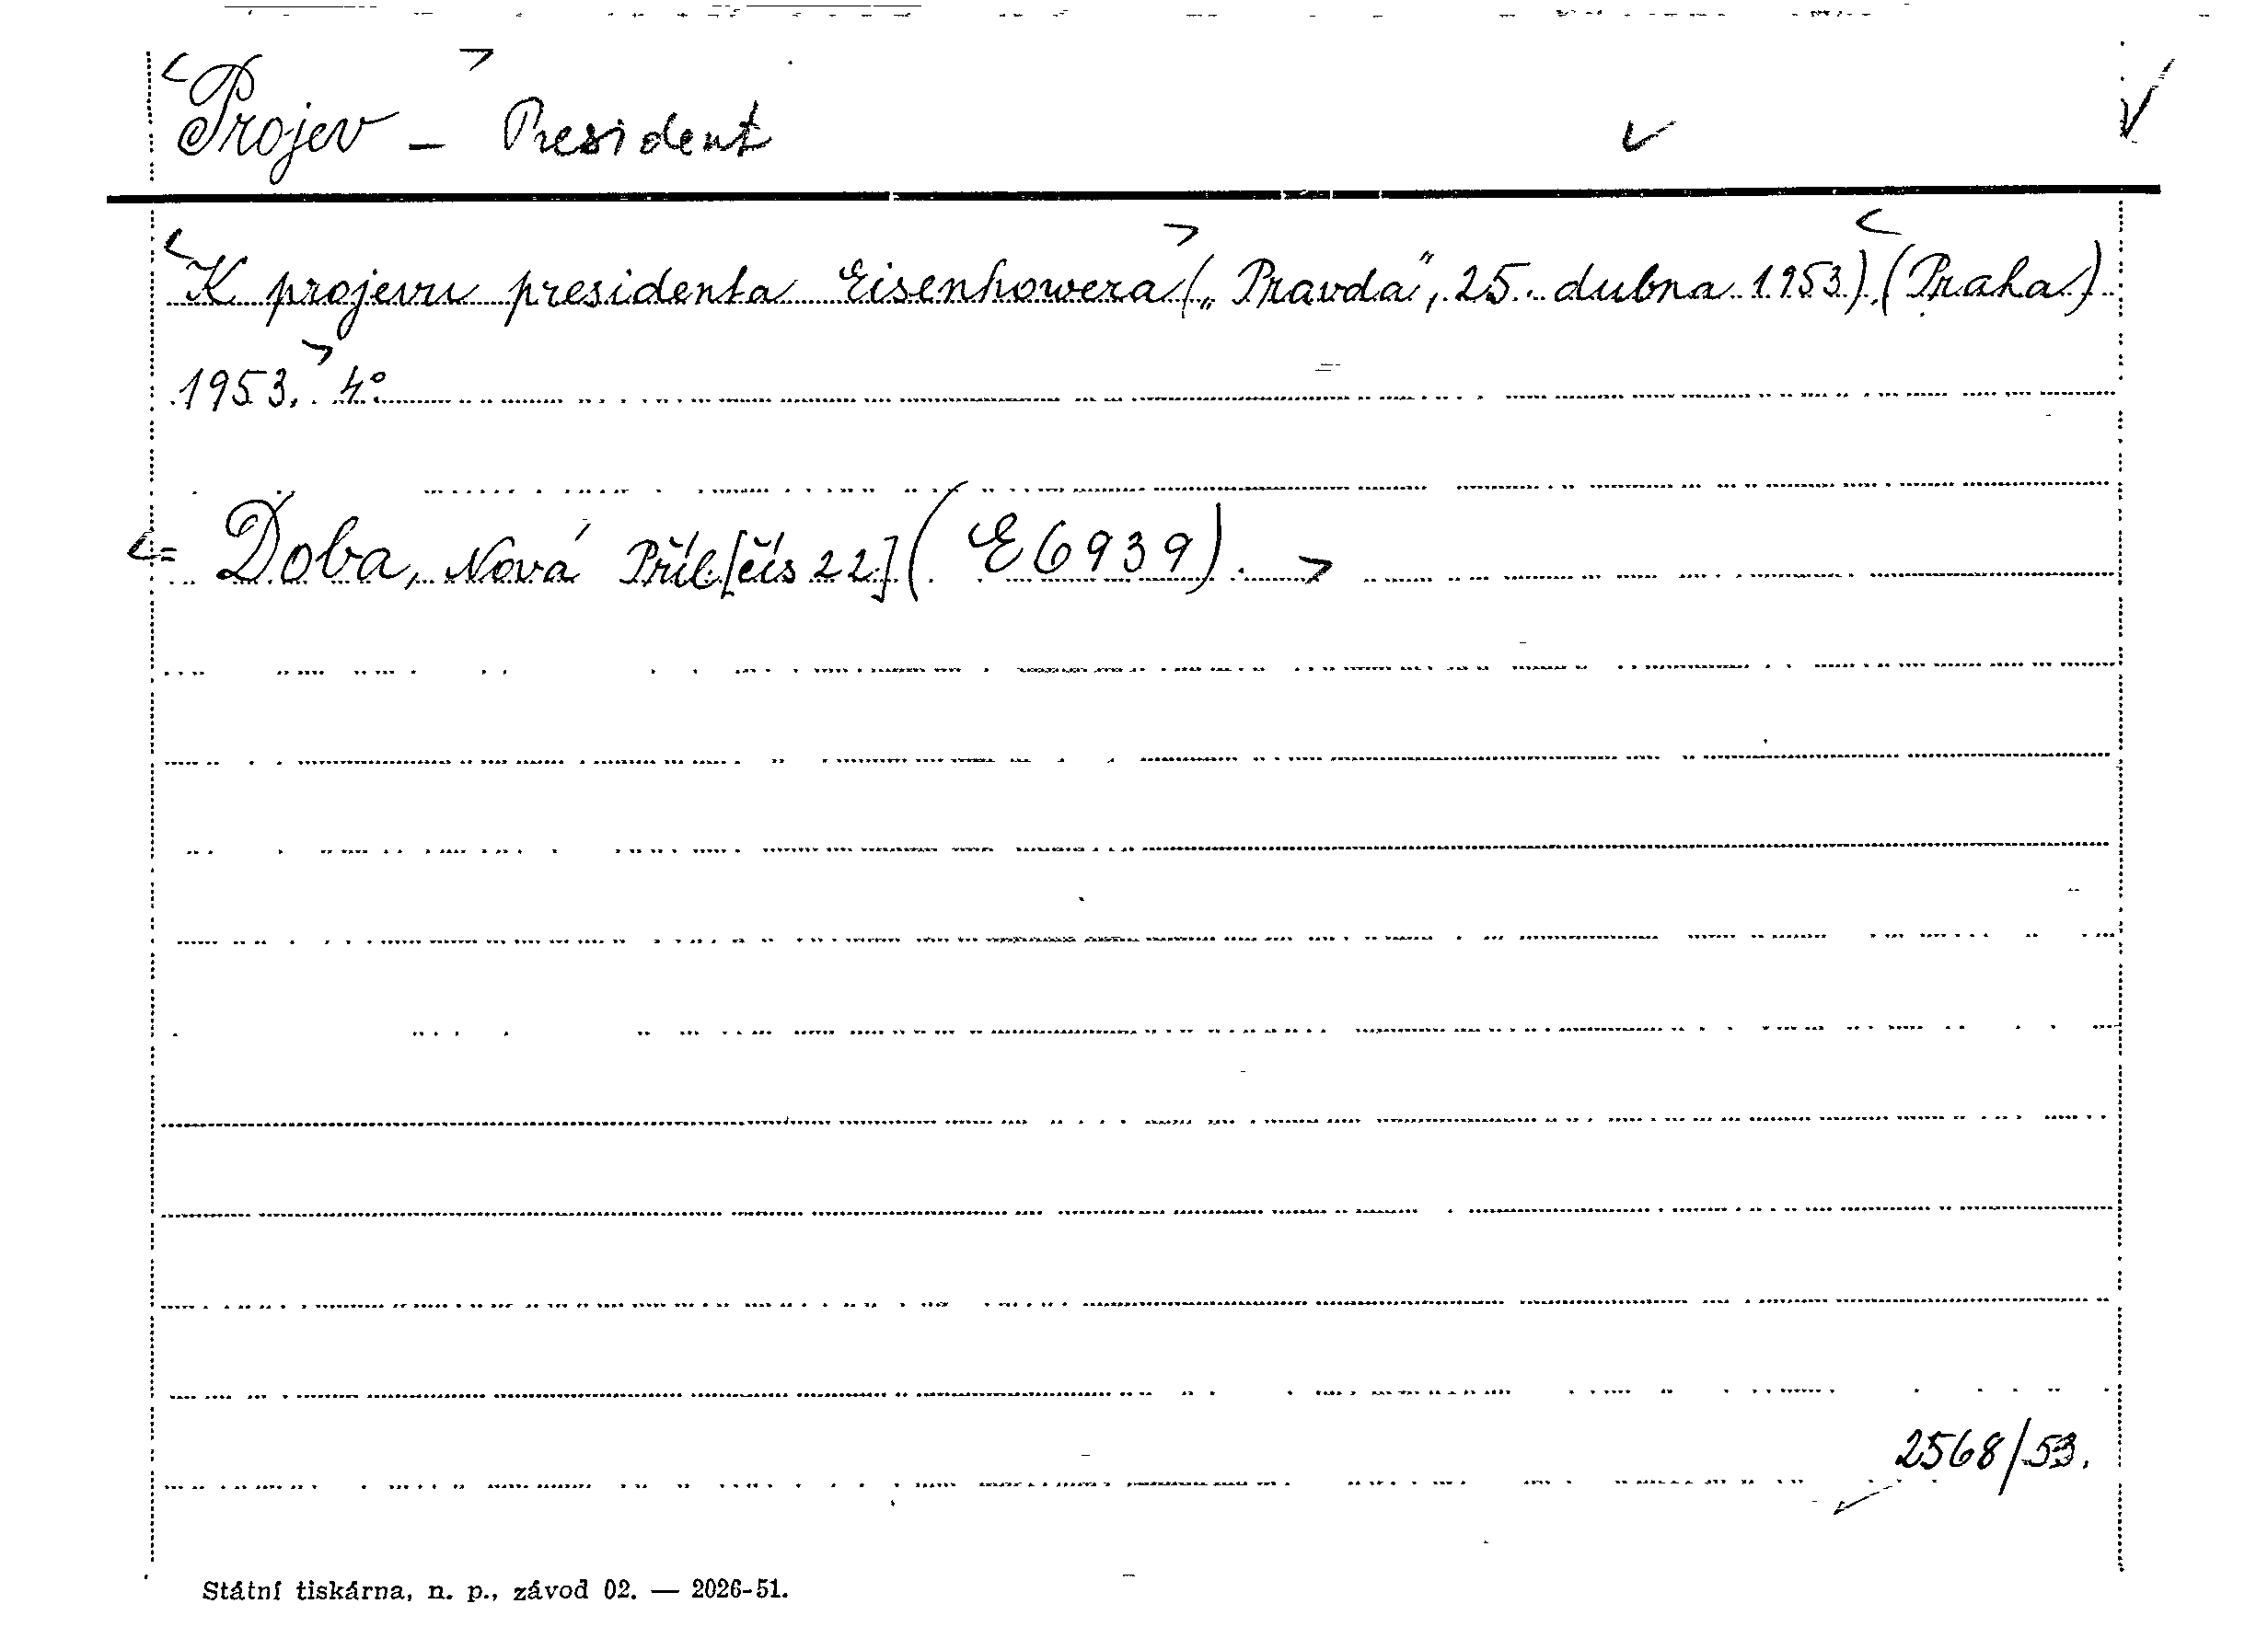 Projev – President
K projevu presidenta Eisenhowera („Pravda“, 25. dubna 1953). (Praha)
1953. 4°.
= Doba, Nová Příl. [čís 22] (E 6939).
2568/53.
Státní tiskárna, n. p., závod 02. — 2026-51.